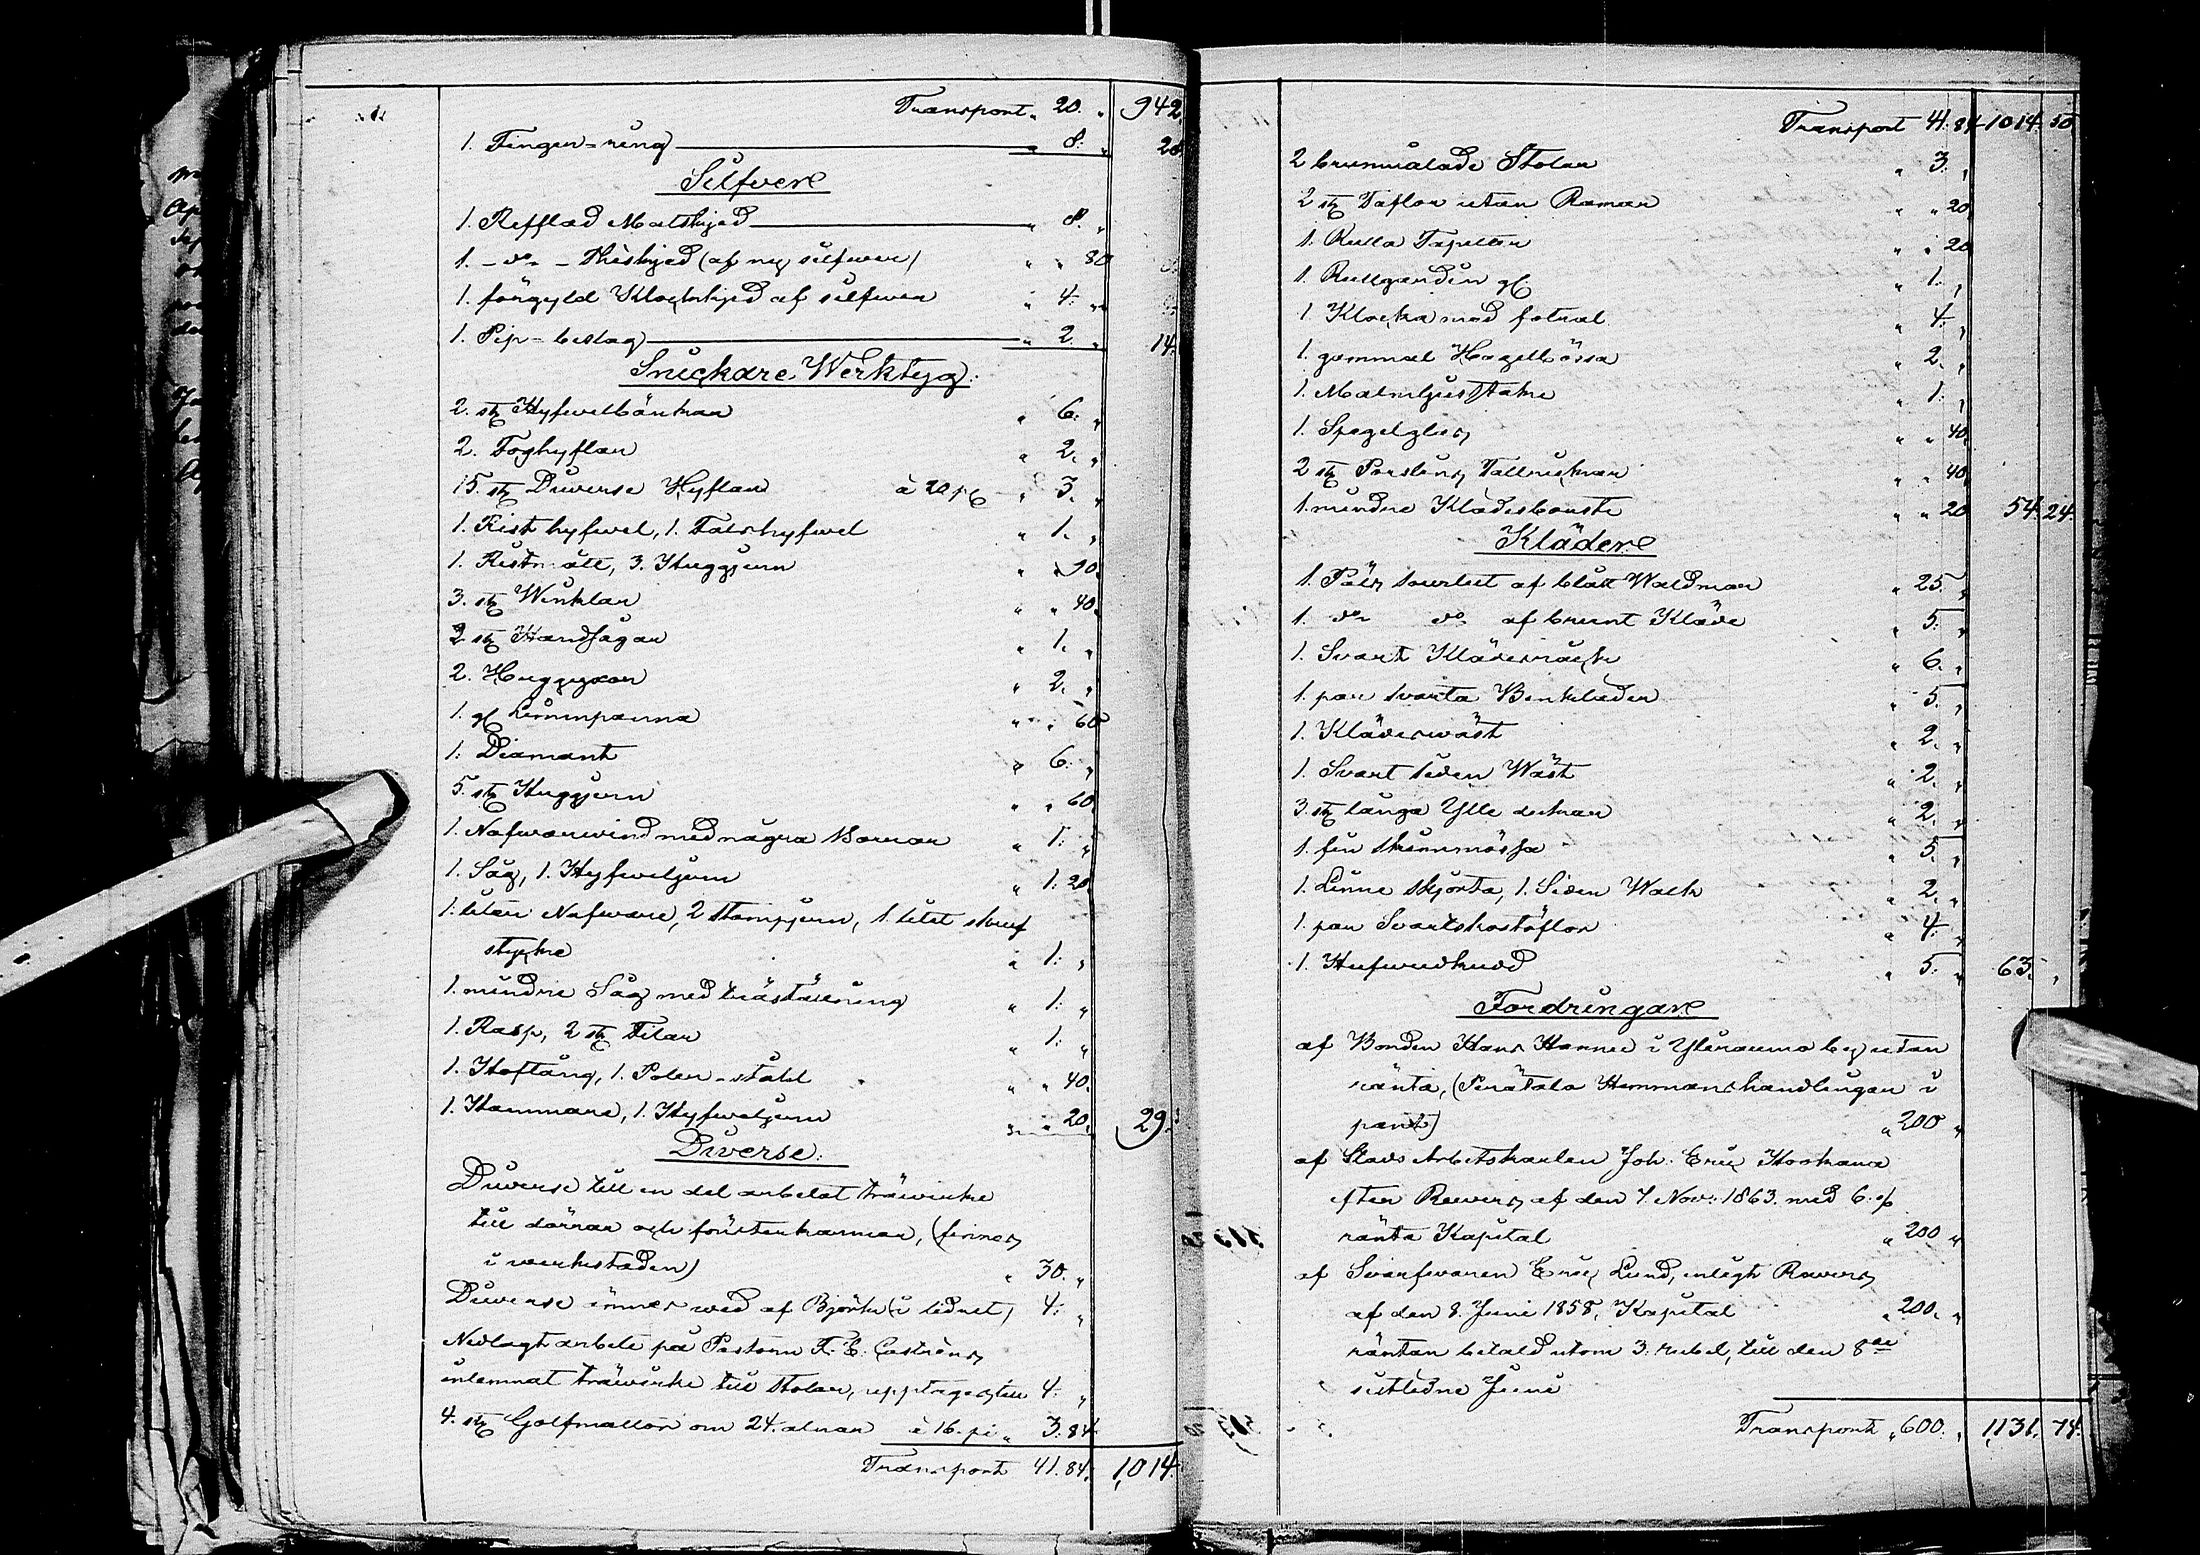 Transport „ 20. „ 942.
1. Finger-ring „ 8. „ 28
Silfver
1. Refflad Matskjed „ 8. „
1. - do - Theskjed (af ny silfwer) „ „ 80
1. förgyld Klockskjed af silfwer „ 4. „
1. Pip-beslag „ 2. „ 14.
Snickare Werktyg:
2. st. Hyfvelbänkar „ 6. „
2. Foghyflar „ 2. „
15. st. Diverse Hyflar à 20 p. „ 3. „
1. Listhyfvel, 1. Falshyfvel „ 1. „
1. Ristmått, 3. Huggjern „ „ 90.
3. st. Winklar „ „ 40.
2 st. Handsågar „ 1. „
2. Huggyxor „ 2. „
1. gl. Limmpanna „ „ 60
1. Diamant „ 6. „
5. st. Huggjern „ „ 60
1. Nafwarwind med några Borrar „ 1. „
1. Såg, 1. Hyfveljern „ 1. 20.
1. liten Nafware, 2 Stampjern, 1 litet skruf
stycke „ 1. „
1. mindre Såg med träställning „ 1. „
1. Rasp, 2 st. Filar „ 1. „
1. Hoftång, 1. Poler-stahl „ „ 40.
1. Hammare, 1. Hyfveljern „ „ 20. 29.
Diverse:
Diverse till en del arbetat träwirke
till dörrar och fönsterkarmar, (finnes
i werkstaden) „ 30. „
Diverse ämnes wed af Björk (i lidret) 4. „
Nedlagt arbete på Pastorn F. E. Castréns
inlemnat träwirke till Stolar, upptages till 4. „
4. st. Golfmattor om 24. alnar à 16. p. „ 3. 84.
Transport 41. 84. 1,014.
Transport 41. 84 1014. 50
2 brunmålade Stolar „ 3. „
2 st. Taflor utan Ramar „ „ 20
1. Rulla Tapeter „ „ 20
1. Rullgardin gl. „ 1. „
1 Klocka med fotral „ 4. „
1. gammal Hagelbössa „ 2. „
1. Malmljusstake „ 1. „
1. Spegelglas „ „ 40.
2 st. Porslins Tallrickar „ „ 40.
1. mindre Klädesborste „ „ 20 54. 24.
Kläder
1. Päls surtut af blått Waldmar „ 25. „
1. do do af brunt Kläde „ 5. „
1. Svart Klädesrock „ 6. „
1. par svarta Benkläder „ 5. „
1. Klädeswäst „ 2. „
1. Svart siden Wäst „ 2. „
3. st. långa Ylle dukar „ 2. „
1. fin skinnmössa „ 5. „
1. Linne skjorta, 1. Siden Walk „ 2. „
1. par Svartskostöflor „ 4. „
1. Hufwudkudd „ 5. „ 63. „
Fordringar
af Bonden Hans Hannu i Yliraumo by utan
ränta, (Perätalo Hemmanshandlingar i
pant) „ 200 „
af Stads Arbetskarlen Joh. Eric Koskana
efter Revers af den 7. Nov: 1863. med 6. %
ränta Kapital „ 200 „
af Svarfvaren Eric Lund, enligt Revers
af den 8. Juni 1858, Kapital „ 200. „
räntan betald utom 3. rubel, till den 8de
sistledne Juni
Transport „ 600. „ 1,131. 74.